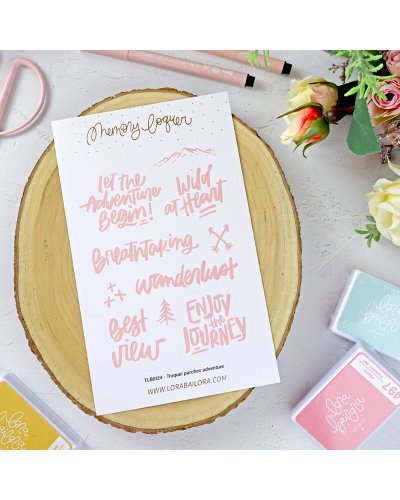 Memory loquer
Let the
Adventure
Begin!
Wild
at Heart
Breathtaking
wanderlust
Best
view
ENJOY
the
JOURNEY
TLB0124 - Troquel parches adventure
WWW.LORABAILORA.COM
lora
bailora
lora
bailora
lora
bailora
497